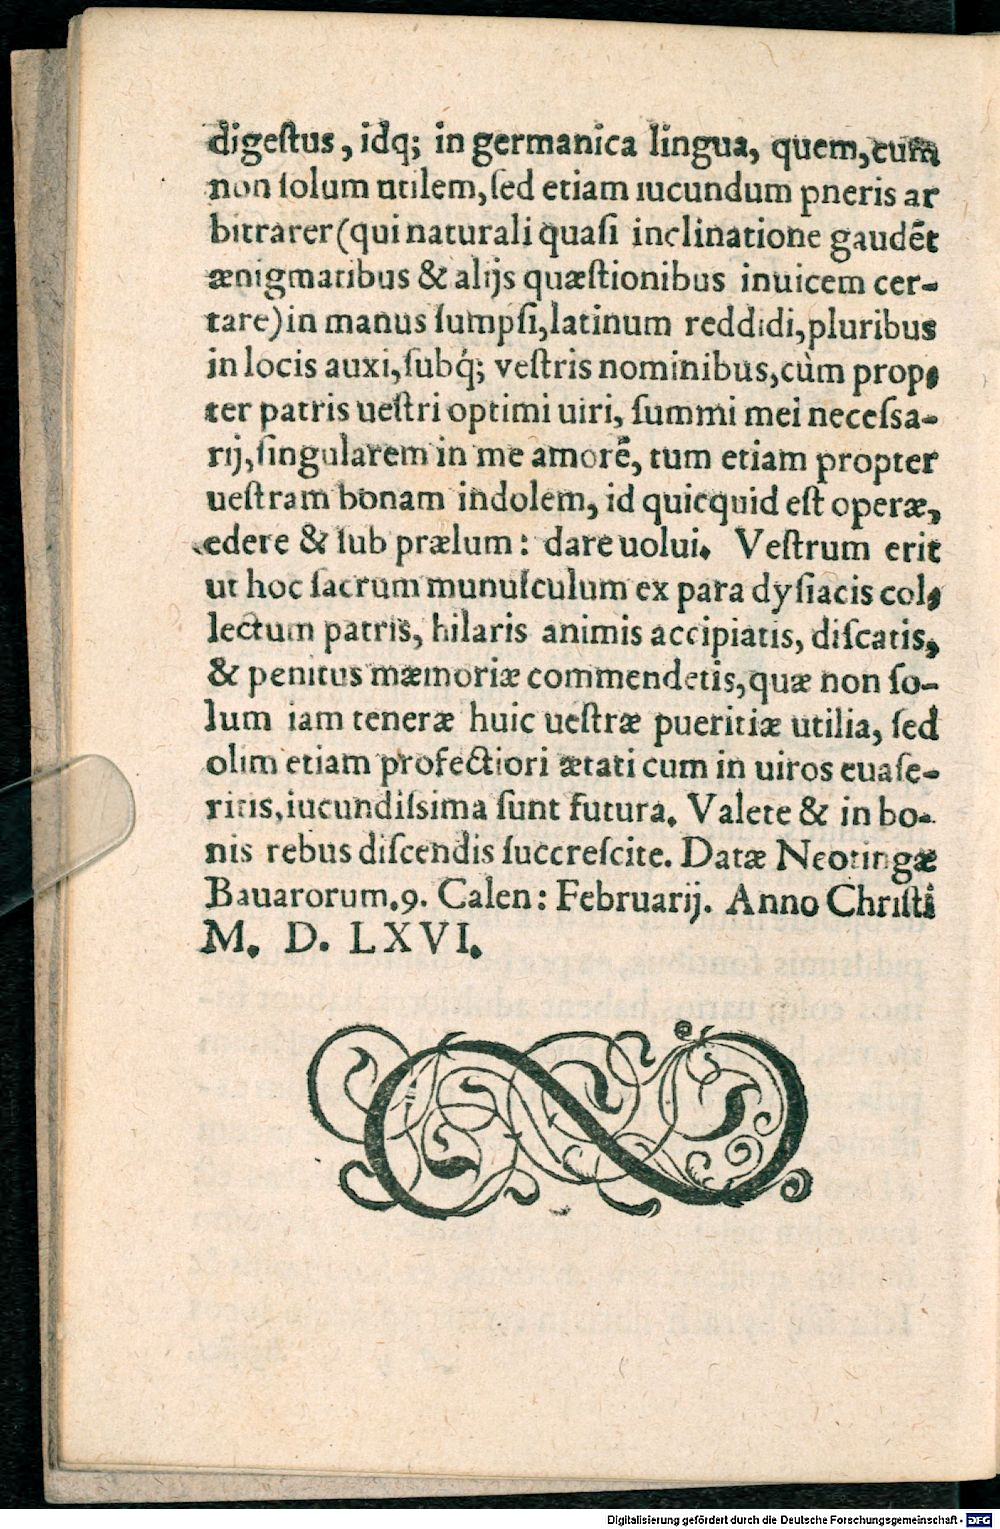 digeſtus, idq; in germanica lingua, quem, cum
non ſolum utilem, ſed etiam iucundum pueris ar
bitrarer (qui naturali quaſi inclinatione gaudēt
ænigmatibus & alijs quæſtionibus inuicem cer-
tare) in manus ſumpſi, latinum reddidi, pluribus
in locis auxi, ſubq́; veſtris nominibus, cùm prop-
ter patris ueſtri optimi uiri, ſummi mei neceſſa-
rij, ſingularem in me amorē, tum etiam propter
ueſtram bonam indolem, id quicquid eſt operæ,
edere & ſub prælum: dare uolui. Veſtrum erit
ut hoc ſacrum munuſculum ex para dyſiacis col-
lectum patris, hilaris animis accipiatis, diſcatis,
& penitus mæmoriæ commendetis, quæ non ſo-
lum iam teneræ huic ueſtræ pueritiæ utilia, ſed
olim etiam profectiori ætati cum in uiros euaſe-
ritis, iucundiſsima ſunt futura. Valete & in bo-
nis rebus diſcendis ſuccreſcite. Datæ Neotingæ
Bauarorum. 9. Calen: Februarij. Anno Chriſti
M. D. LXVI.
Digitalisierung gefördert durch die Deutsche Forschungsgemeinschaft - DFG